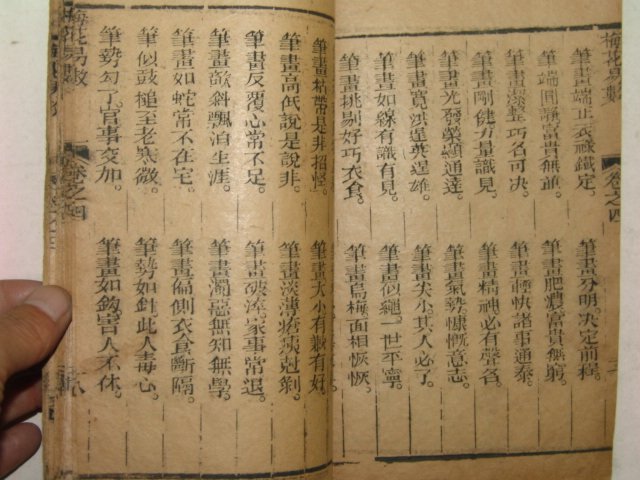 梅花易數
卷之四
筆畫端正衣祿鐵定。
筆畫分明。決定前程。
筆端圓淨富貴無誰。
筆畫肥濃富貴無窮。
筆畫潔整巧名可決。
筆畫輕快諸事通泰。
筆畫剛健力量識見。
筆畫精神必有聲名。
筆畫光發榮顯通達。
筆畫氣勢。慷慨意志。
筆畫寬洪逞英逞雄。
筆畫尖小。其人必了。
筆畫如線有識有見。
筆畫似繩。一世平寧。
筆畫挑剔好巧衣食。
筆畫烏梅。面相恢恢。
筆畫精帶是非招怪。
筆畫大小有歉有好。
筆畫高低說是說非。
筆畫淡薄瘡痍剋剝。
筆畫反覆心常不足。
筆畫破溱。家事常退。
筆畫欹斜飄泊生涯。
筆畫濁惡無知無學。
筆畫如蛇常不在宅。
筆畫偏側衣食斷隔。
筆似鼓槌至老寒微。
筆勢如針。此人毒心。
筆勢勾了。官事交加。
筆畫如鈎。害人不休。
梅花易數
卷之四
八